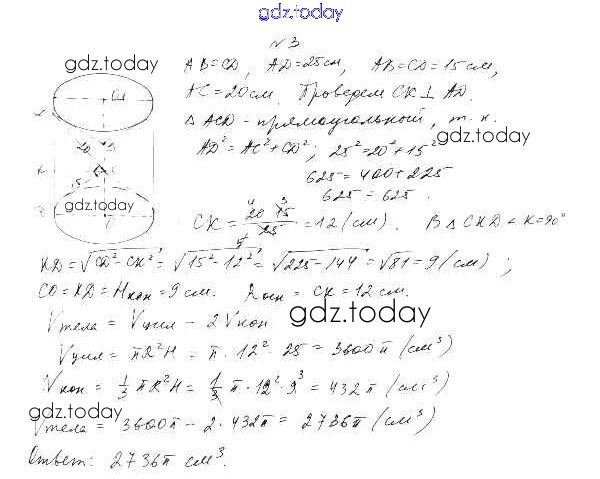 gdz.today
№ 3
gdz.today AB=CD, AD=25см, AB=CD=15см,
AC=20см. Проведем CK⊥AD.
△ACD-прямоугольный, т.к.
gdz.today
AD²=AC²+CD²; 25²=20²+15²
625=400+225
625=625.
20
15
gdz.today
CK = 20·15/25 = 12 (см). В △CKD ∠K=90°
KD=√CD²-CK²=√15²-12²=√225-144=√81=9(см);
CO=KD=Hкон=9см. Rосн=CK=12см.
Vтела=Vцил-2Vкон
gdz.today
Vцил=πR²H=π·12²·25=3600π(см³)
Vкон=1/3πR²H=1/3π·12²·9=432π(см³)
gdz.today
Vтела=3600π-2·432π=2736π(см³)
Ответ: 2736π см³.
gdz.today